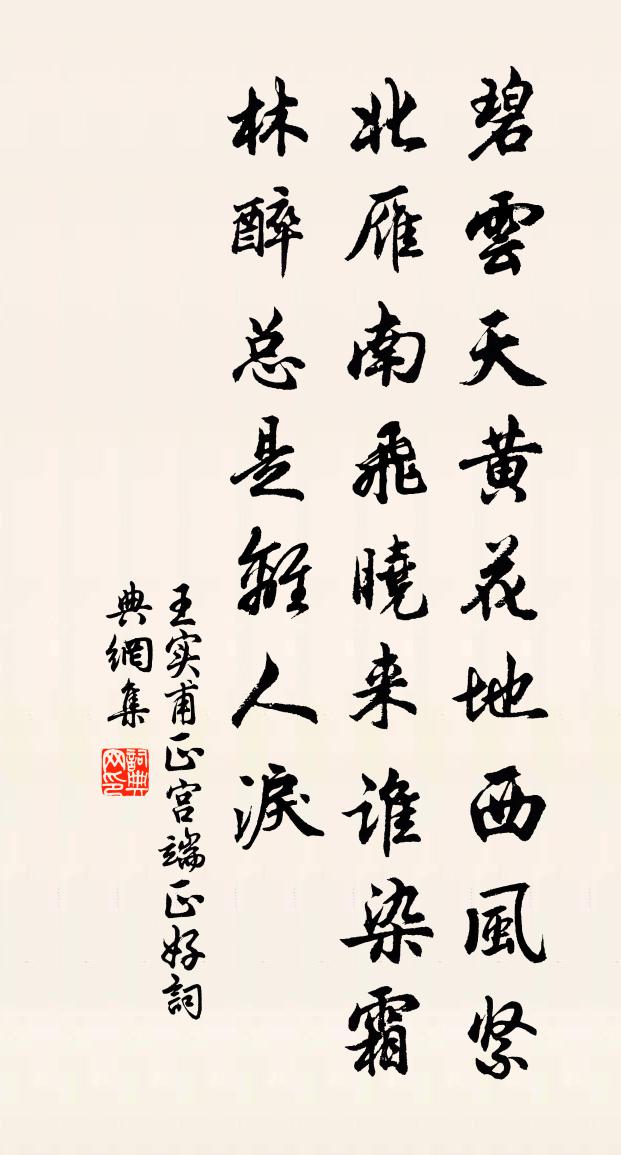 碧雲天黄花地西風紧
北雁南飛曉来谁染霜
林醉总是離人淚
王实甫正宫端正好词
典網集
詞典网印